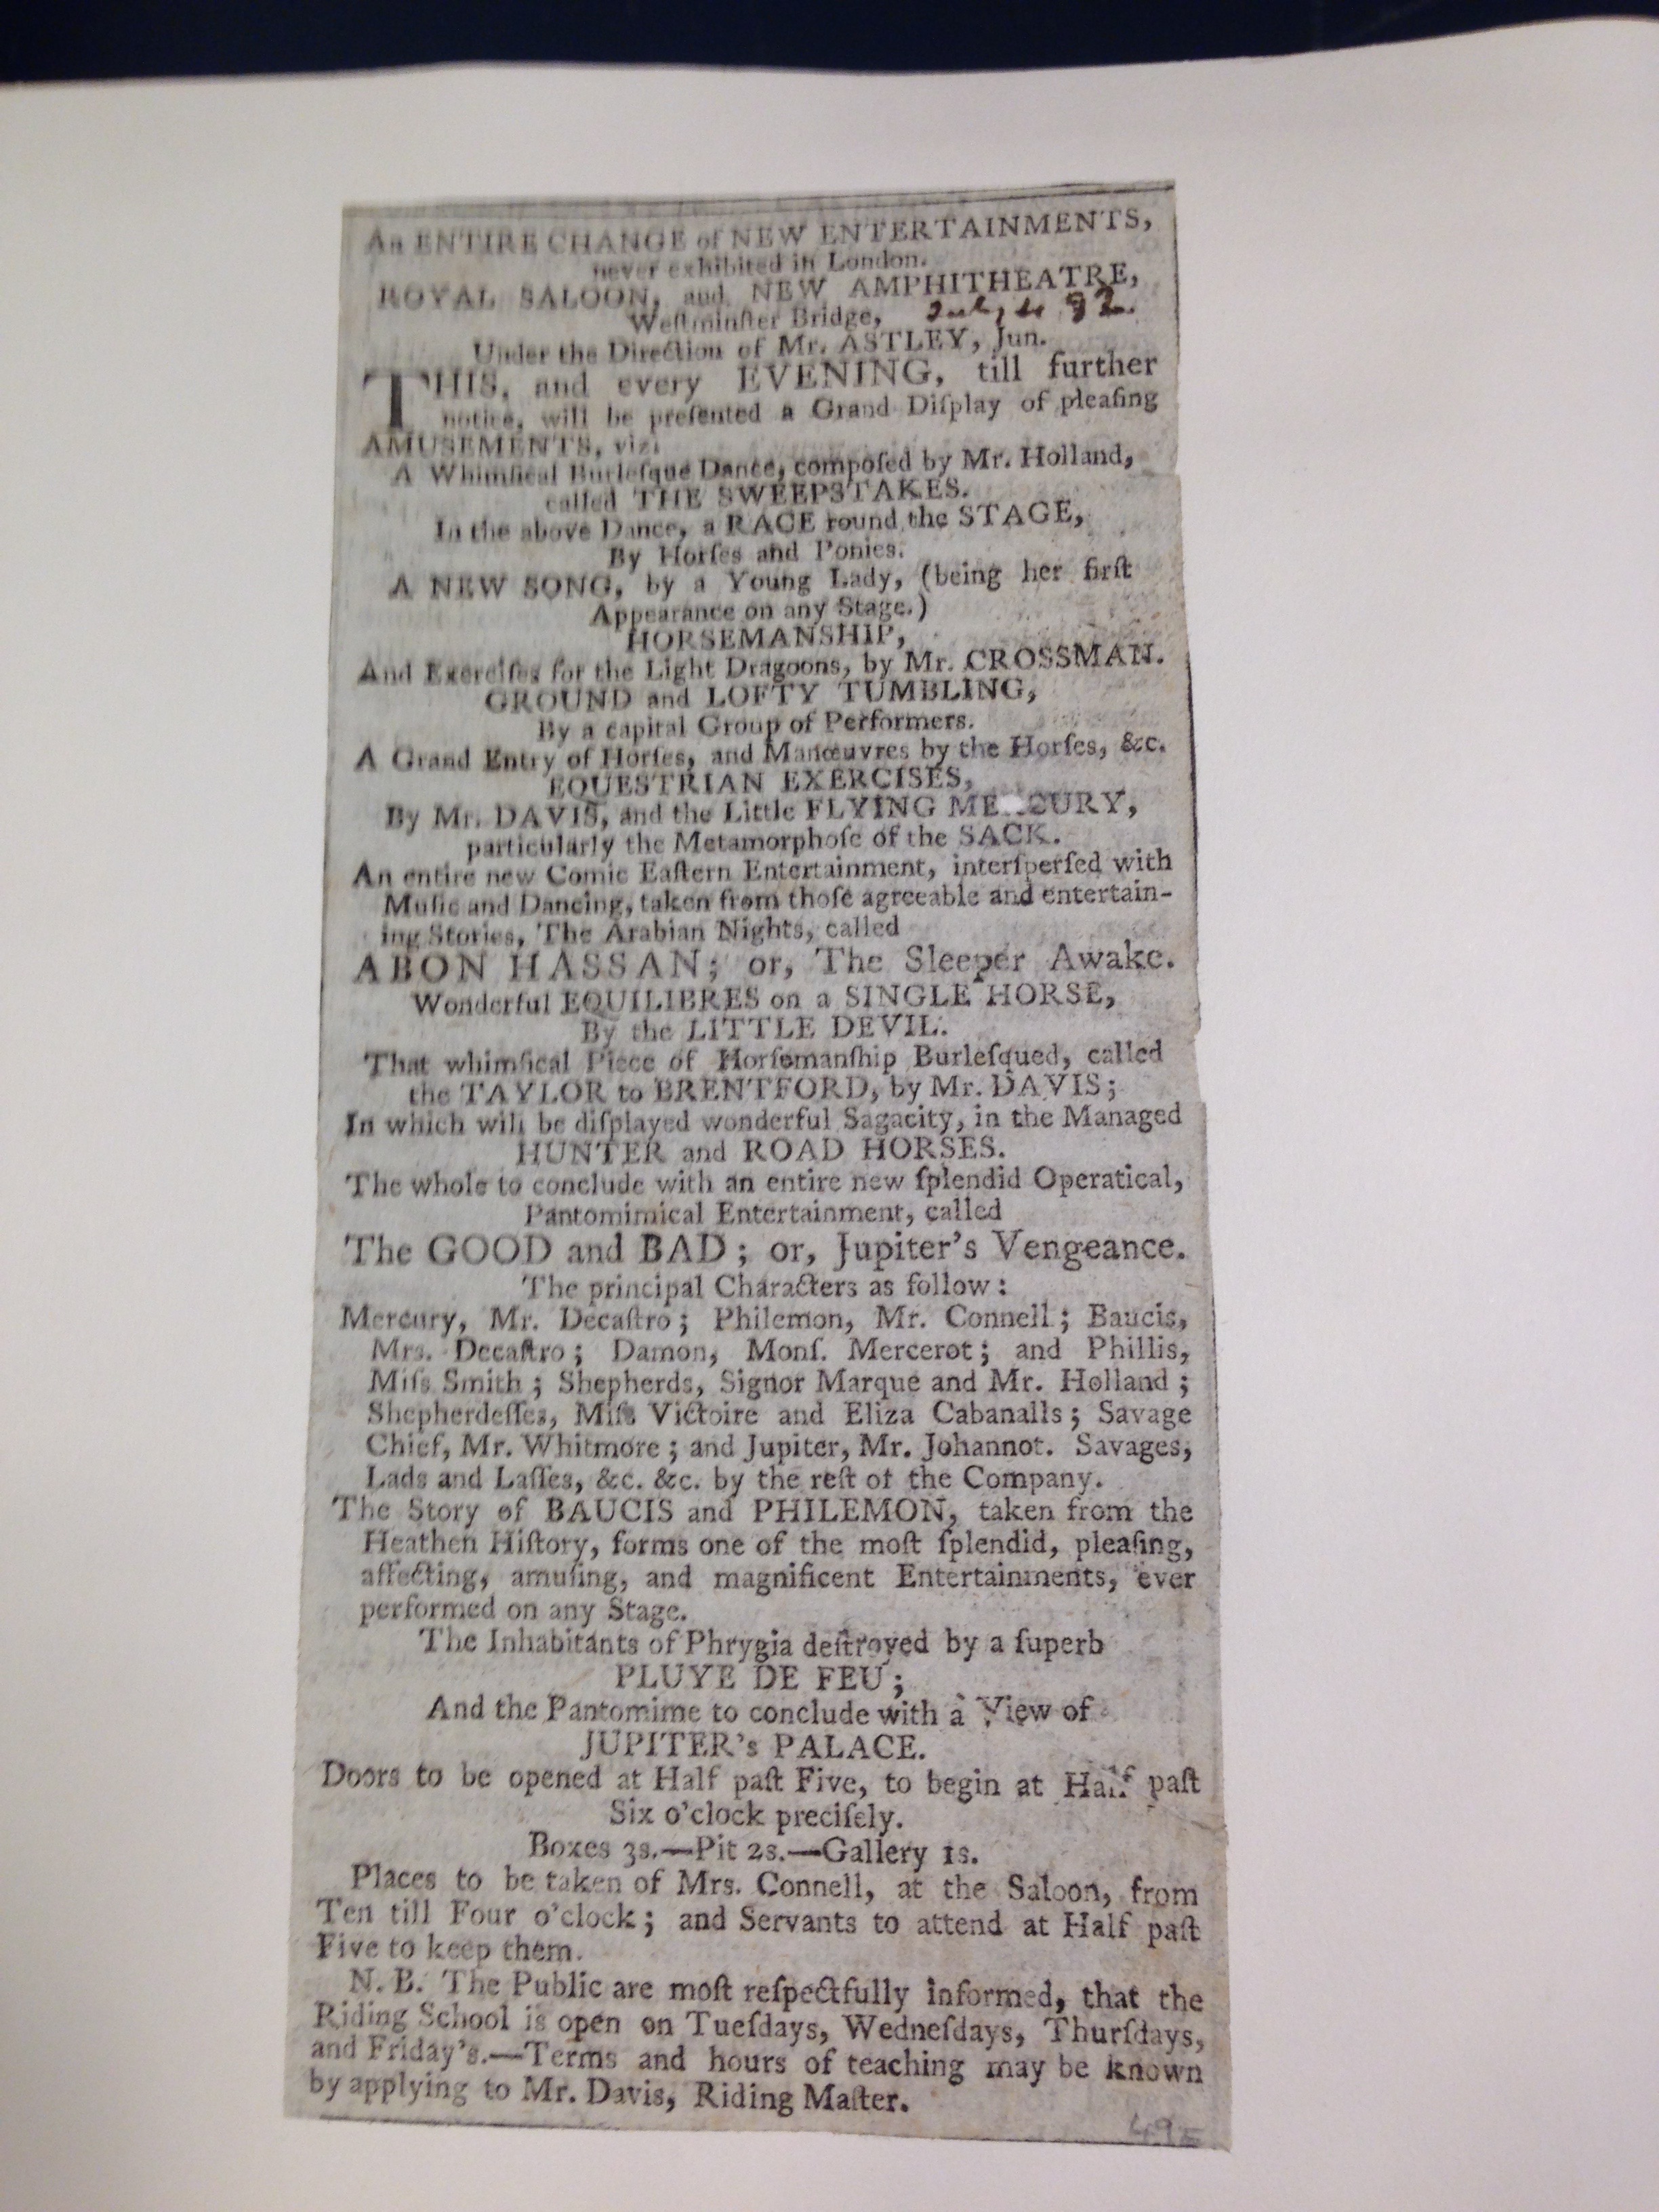 An ENTIRE CHANGE of NEW ENTERTAINMENTS,
never exhibited in London.
ROYAL SALOON, and NEW AMPHITHEATRE,
Weſtminſter Bridge, July 4 92.
Under the Direction of Mr. ASTLEY, Jun.
THIS, and every EVENING, till further
notice, will be preſented a Grand Diſplay of pleaſing
AMUSEMENTS, viz.
A Whimſical Burleſque Dance, compoſed by Mr. Holland,
called THE SWEEPSTAKES.
In the above Dance, a RACE round the STAGE,
By Horſes and Ponies.
A NEW SONG, by a Young Lady, (being her firſt
Appearance on any Stage.)
HORSEMANSHIP,
And Exerciſes for the Light Dragoons, by Mr. CROSSMAN.
GROUND and LOFTY TUMBLING,
By a capital Group of Performers.
A Grand Entry of Horſes, and Manœuvres by the Horſes, &c.
EQUESTRIAN EXERCISES,
By Mr. DAVIS, and the Little FLYING MERCURY,
particularly the Metamorphoſe of the SACK.
An entire new Comic Eaſtern Entertainment, interſperſed with
Muſic and Dancing, taken from thoſe agreeable and entertain-
ing Stories, The Arabian Nights, called
ABON HASSAN; or, The Sleeper Awake.
Wonderful EQUILIBRES on a SINGLE HORSE,
By the LITTLE DEVIL.
That whimſical Piece of Horſemanſhip Burleſqued, called
the TAYLOR to BRENTFORD, by Mr. DAVIS;
In which will be diſplayed wonderful Sagacity, in the Managed
HUNTER and ROAD HORSES.
The whole to conclude with an entire new ſplendid Operatical,
Pantomimical Entertainment, called
The GOOD and BAD; or, Jupiter's Vengeance.
The principal Characters as follow:
Mercury, Mr. Decaſtro; Philemon, Mr. Connell; Baucis,
Mrs. Decaſtro; Damon, Monſ. Mercerot; and Phillis,
Miſs Smith; Shepherds, Signor Marque and Mr. Holland;
Shepherdeſſes, Miſs Victoire and Eliza Cabanalls; Savage
Chief, Mr. Whitmore; and Jupiter, Mr. Johannot. Savages,
Lads and Laſſes, &c. &c. by the reſt of the Company.
The Story of BAUCIS and PHILEMON, taken from the
Heathen Hiſtory, forms one of the moſt ſplendid, pleaſing,
affecting, amuſing, and magnificent Entertainments, ever
performed on any Stage.
The Inhabitants of Phrygia deſtroyed by a ſuperb
PLUYE DE FEU;
And the Pantomime to conclude with a View of
JUPITER's PALACE.
Doors to be opened at Half paſt Five, to begin at Half paſt
Six o'clock preciſely.
Boxes 3s.—Pit 2s.—Gallery 1s.
Places to be taken of Mrs. Connell, at the Saloon, from
Ten till Four o'clock; and Servants to attend at Half paſt
Five to keep them.
N. B. The Public are moſt reſpectfully informed, that the
Riding School is open on Tueſdays, Wedneſdays, Thurſdays,
and Friday's.—Terms and hours of teaching may be known
by applying to Mr. Davis, Riding Maſter.